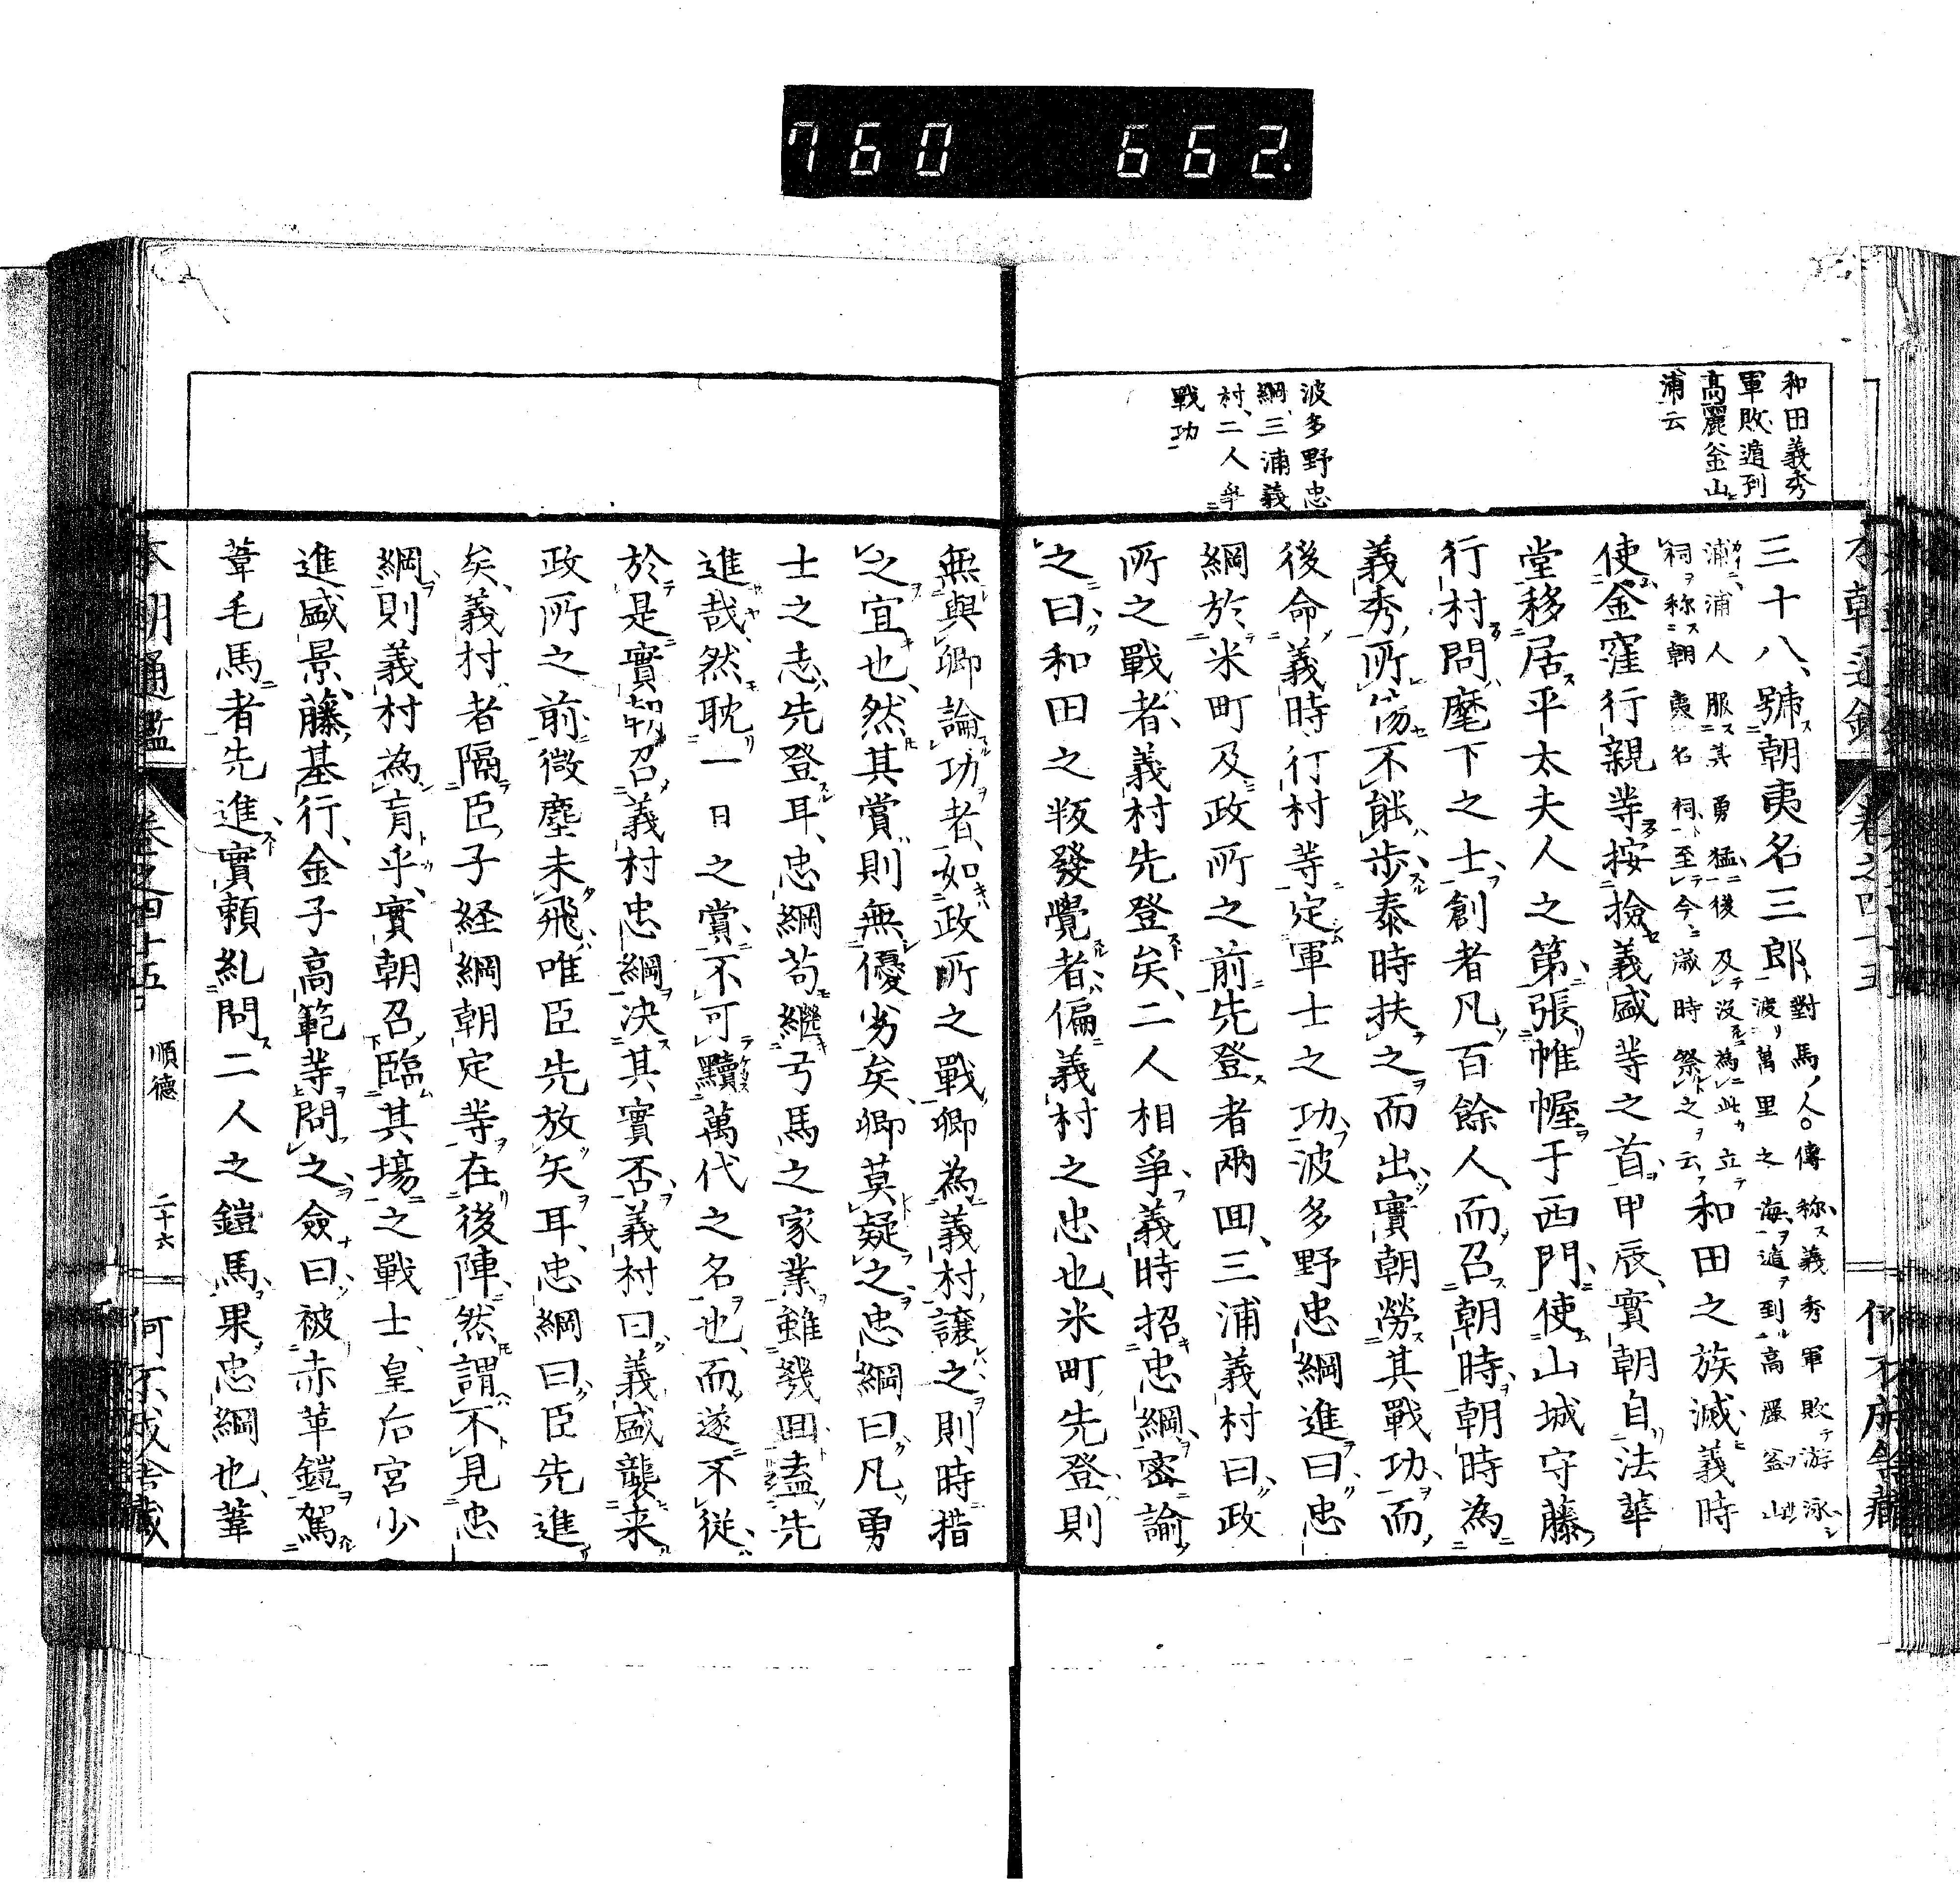 760 662.
和田義秀
軍敗遁到
高麗釜山
浦云
波多野忠
綱三浦義
村二人爭
戰功
三十八、號朝夷名三郎
對馬人傳称義秀軍敗游泳
渡萬里之海遁到高麗釜山
浦浦人服其勇猛後及没為此立
祠称朝夷名祠至今歳時祭之云
和田之族滅義時
使金窪行親等按撿義盛等之首甲辰實朝自法華
堂移居平太夫人之第張帷幄于西門使山城守藤
行村問麾下之士創者凡百餘人而召朝時朝時為
義秀所傷不能步泰時扶之而出實朝勞其戰功而
後命義時行村等定軍士之功波多野忠綱進曰忠
綱於米町及政所之前先登者兩回三浦義村曰政
所之戰者義村先登矣二人相爭義時招忠綱密諭
之曰和田之叛發覺者偏義村之忠也米町先登則
無與卿論功者如政所之戰卿為義村讓之則時措
之宜也然其賞則無優劣矣卿莫疑之忠綱曰凡勇
士之志先登耳忠綱苟繼弓馬之家業雖幾回盍先
進哉然耽一日之賞不可黷萬代之名也而遂不從
於是實朝召義村忠綱決其實否義村曰義盛襲来
政所之前微塵未飛唯臣先放矢耳忠綱曰臣先進
矣義村者隔臣子経綱朝定等在後陣然謂不見忠
綱則義村為盲乎實朝召臨其場之戰士皇后宮少
進盛景藤基行金子高範等問之僉曰被赤革鎧駕
葦毛馬者先進實頼糺問二人之鎧馬果忠綱也葦
本朝通鑑 卷之四十五 順德 二十六